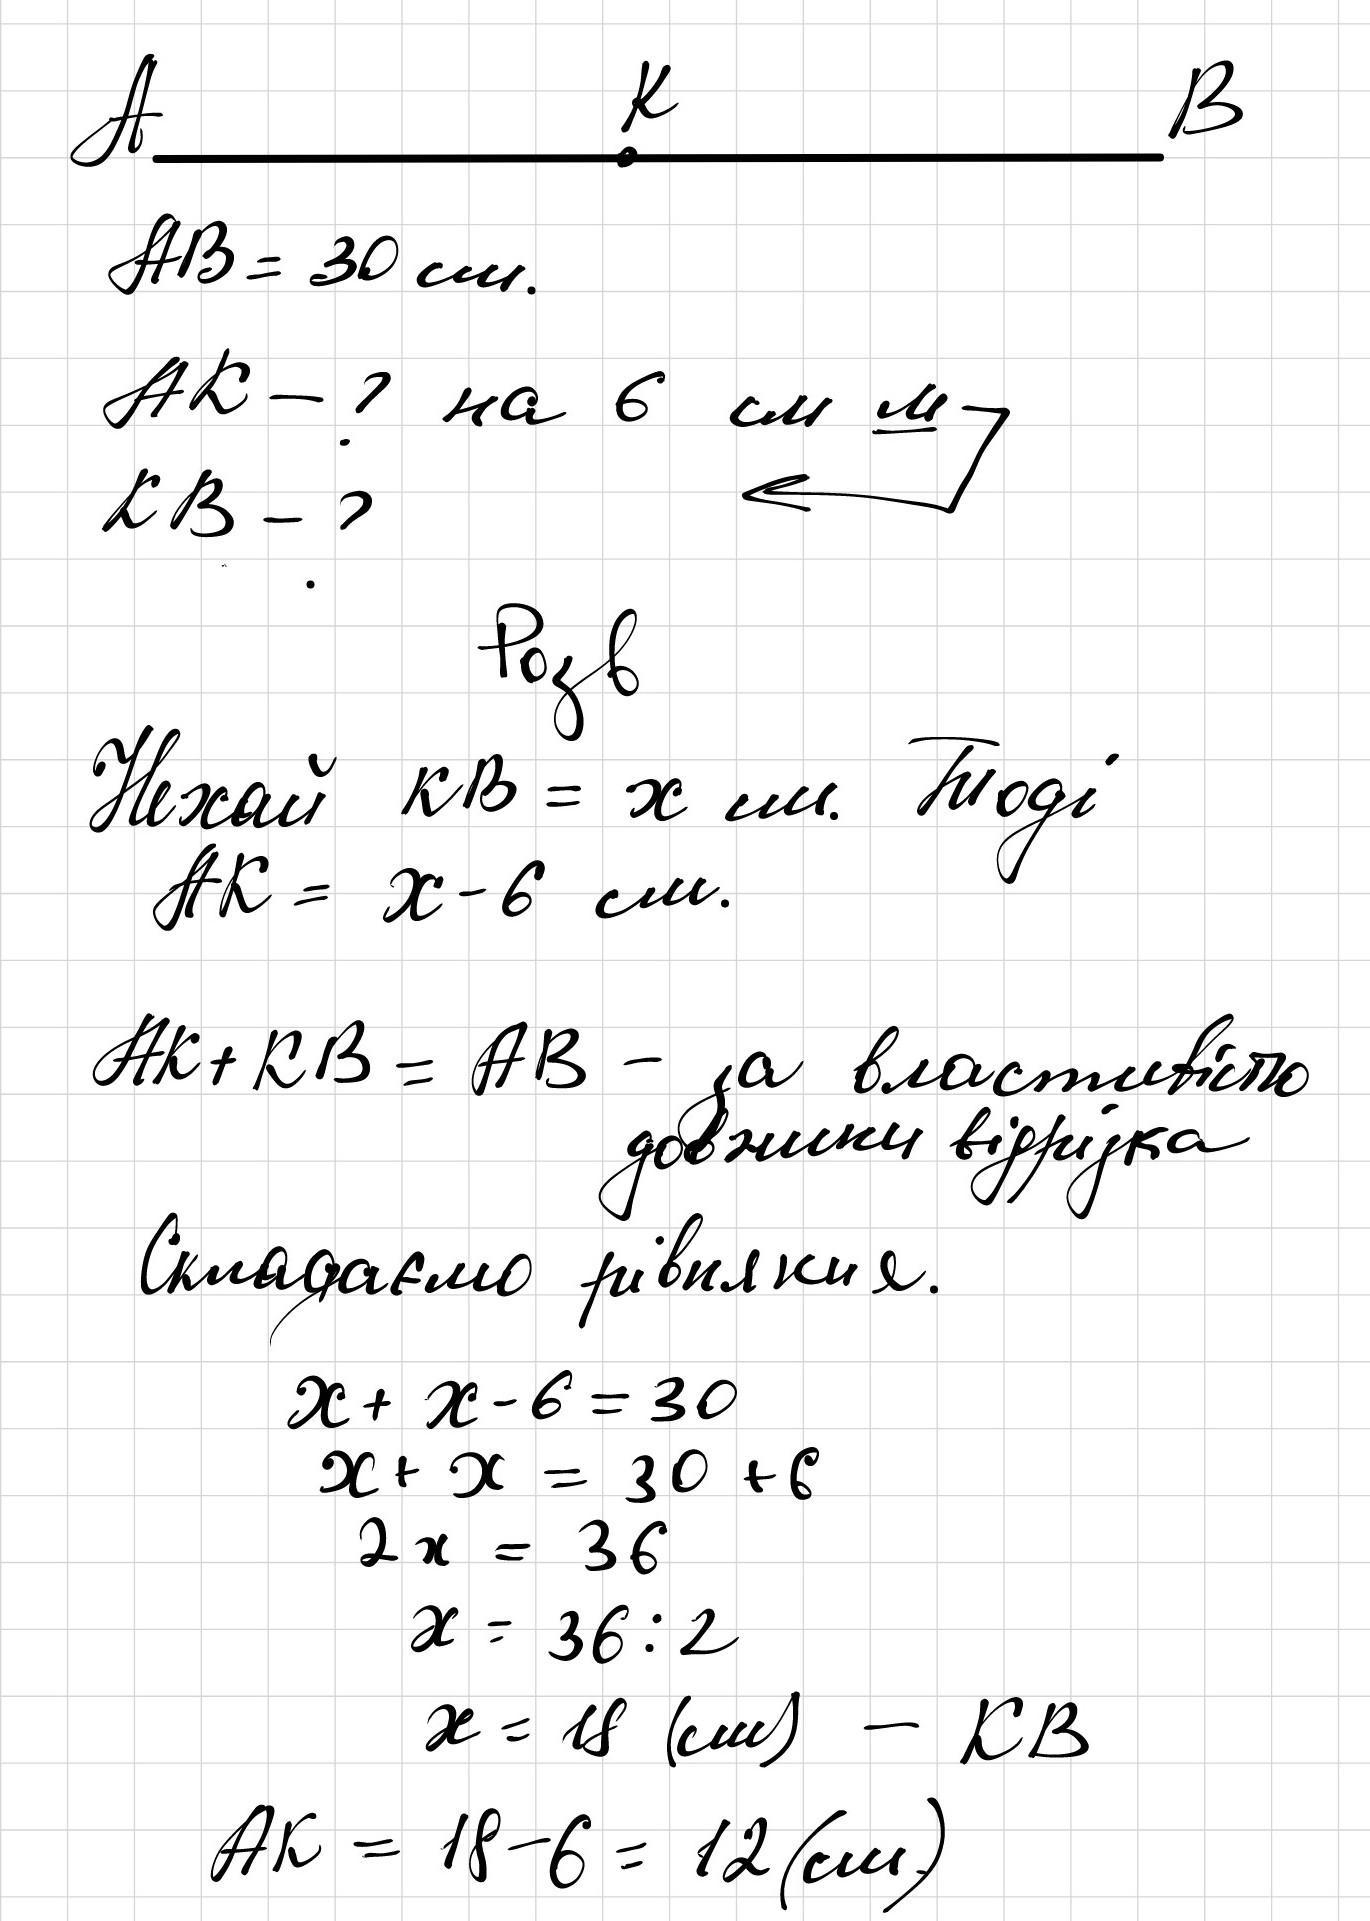 А К В
АВ = 30 см.
АК - ? на 6 см м
КВ - ?
Розв
Нехай КВ = x см. Тоді
АК = x - 6 см.
АК + КВ = АВ - за властивістю
довжини відрізка
Складаємо рівняння.
x + x - 6 = 30
x + x = 30 + 6
2x = 36
x = 36 : 2
x = 18 (см) - КВ
АК = 18 - 6 = 12 (см)